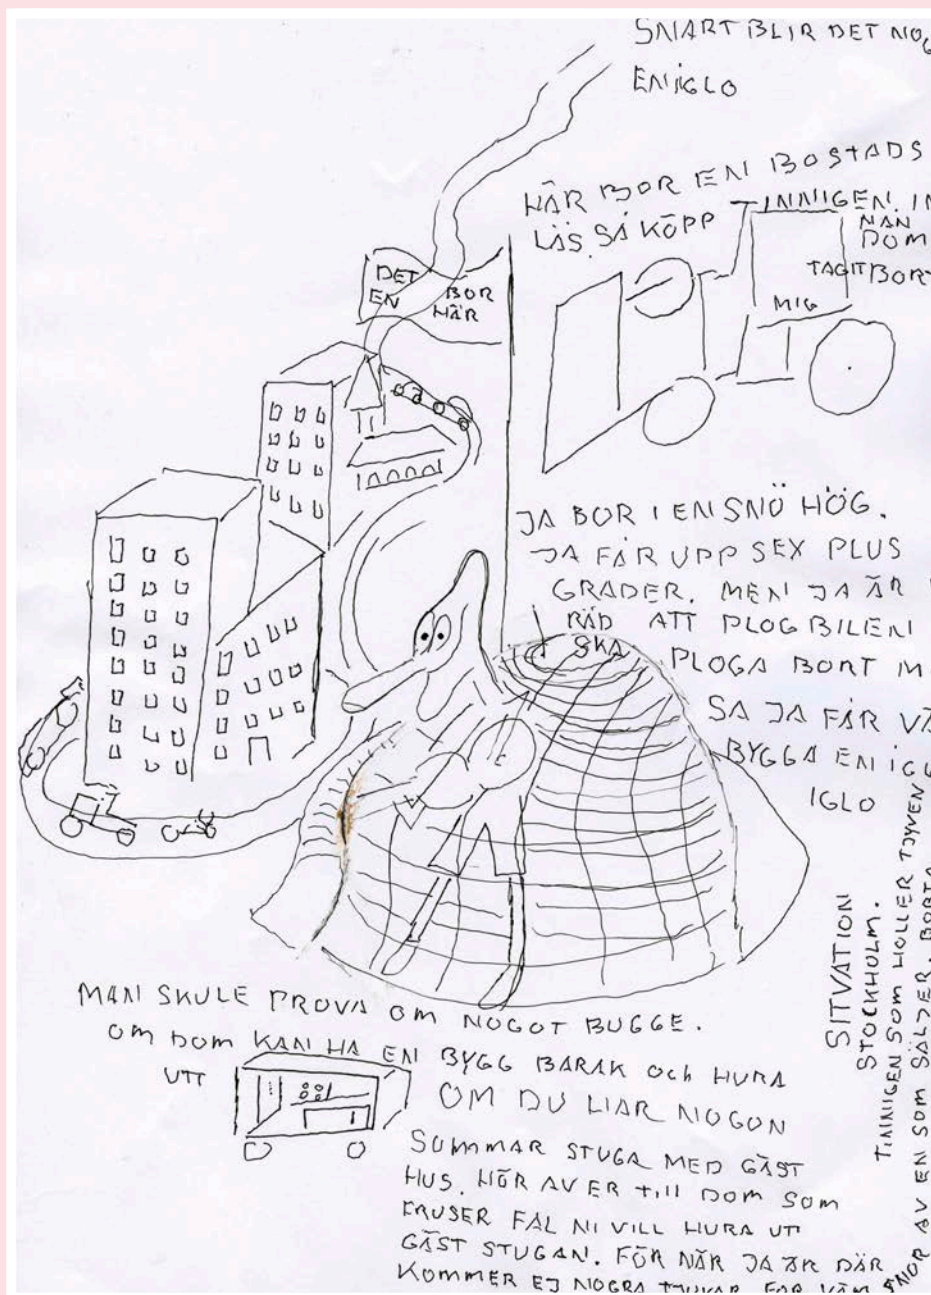 SNART BLIR DET NOG
EN IGLO
HÄR BOR EN BOSTADS
LÄS SÅ KÖPP TINNIGEN. IN
NAN
DOM
TAGIT BORT
MIG
DET BOR
EN HÄR
JA BOR I EN SNÖ HÖG.
JA FÅR UPP SEX PLUS
GRADER. MEN JA ÄR
RÄD ATT PLOG BILEN
SKA PLOGA BORT M
SA JA FÅR VÄ
BYGGA EN IGL
IGLO
SITVATION
STOCKHOLM.
TINNIGEN SOM HOLLER TJYVEN
SNOR AV EN SOM SÄLJER. BORTA
MAN SKULE PROVA OM NOGOT BUGGE.
OM DOM KAN HA EN BYGG BARAK OCH HURA
UTT
OM DU HAR NOGON
SOMMAR STUGA MED GÄST
HUS. HÖR AV ER TILL DOM SOM
KRUSER FAL NI VILL HURA UT
GÄST STUGAN. FÖR NÄR JA ÄR DÄR
KOMMER EJ NOGRA TJUVAR. FOR VÄM